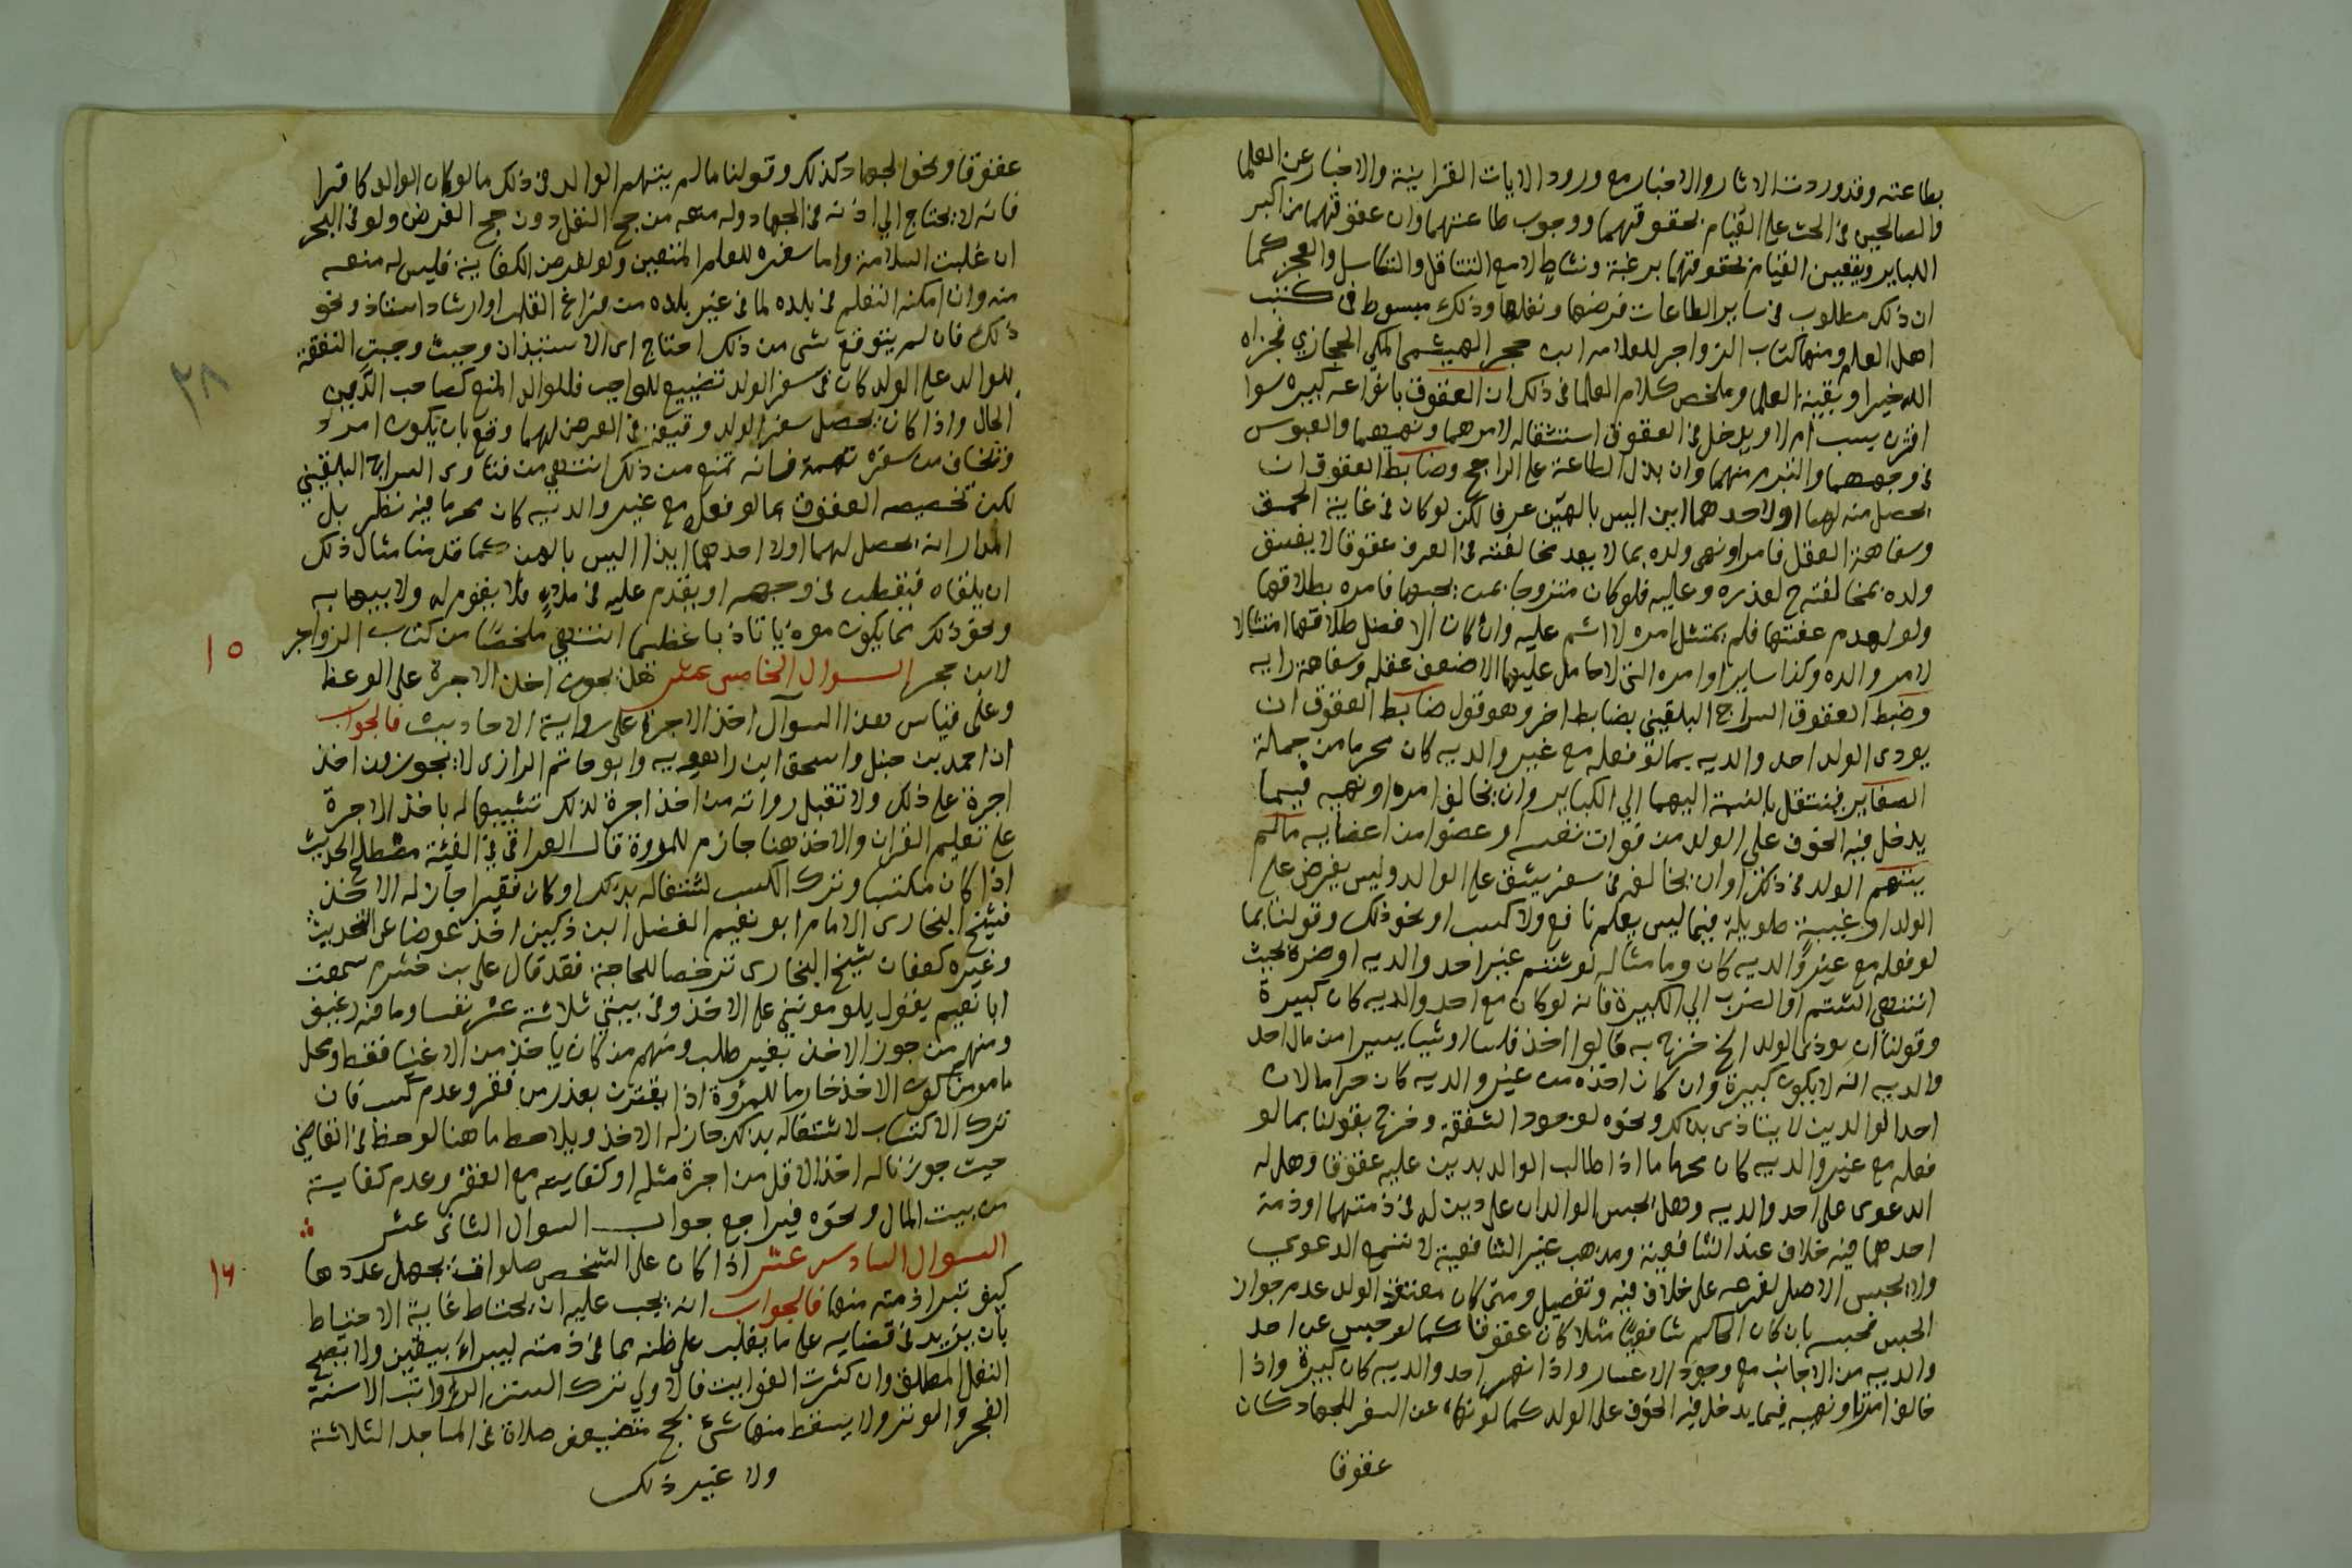 بطاعته وقد وردت الاثار والاخبار مع ورود الايات القرانية والاخبار عن العلما
والصالحين في الحث على القيام بحقوقهما ووجوب طاعتهما وان عقوقهما من اكبر
الكباير ويتعين القيام بحقوقهما برغبة ونشاط لا مع التثاقل والتكاسل والعجز كما
ان ذلك مطلوب في ساير الطاعات فرضها ونفلها وذلك مبسوط في كتب
اهل العلم ومنها كتاب الزواجر للعلامه ابن حجر الهيثمي المكي الحجازي فجزاه
الله خيرا وبقية العلما وملخص كلام العلما في ذلك ان العقوق بانواعه كبيره سوا
اقترن بسب ام لا ويدخل في العقوق استثقاله لامرهما ونهيهما والعبوس
في وجههما والتبرم منهما وان بذل الطاعة على الراجح وضابط العقوق ان
يحصل منه لهما او لاحدهما ايذا ليس بالهين عرفا لكن لو كان في غاية الحمق
وسفاهة العقل فامر او نهى ولده بما لا يعد مخالفته في العرف عقوقا لا يفسق
ولده بمخالفته ح لعذره وعليه فلو كان متزوجا بمن يحبها فامره بطلاقها
ولو لعدم عفتها فلم يمتثل امره لا اثم عليه وان كان الافضل طلاقها امتثالا
لامر والده وكذا ساير اوامره التي لا حامل عليها الا ضعف عقله وسفاهة رايه
وضبط العقوق السراج البلقيني بضابط اخر وهو قوله ضابط العقوق ان
يوذي الولد احد والديه بما لو فعله مع غير والديه كان محرما من جملة
الصغاير فينتقل بالنسبة اليهما الي الكباير وان يخالف امره او نهيه فيما
يدخل فيه الخوف على الولد من فوات نفسه او عضو من اعضايه مالم
يتهم الولد في ذلك او ان يخالفه في سفر يشق على الوالد وليس بفرض على
الولد او غيبة طويلة فيما ليس بعلم نافع ولا كسب او نحو ذلك وقولنا بما
لو فعله مع غير والديه كان وما مثاله لو شتم غير احد والديه او ضربه بحيث
انتهى الشتم او الضرب الي الكبيرة فانه لو كان مع احد والديه كان كبيرة
وقولنا ان يوذى الولد الخ خرج به ما لو اخذ فلسا او شيا يسيرا من مال احد
والديه انه لا يكون كبيرة وان كان اخذه من غير والديه كان حراما لان
احد الوالدين لا يتاذى بذلك ونحوه لوجود الشفقة وخرج بقولنا بما لو
فعله مع غير والديه كان محرما ما اذا طالب الوالد بدين عليه عقوقا وهل له
الدعوى على احد والديه وهل يحبس الوالدان على دين له في ذمتهما او ذمة
احدهما فيه خلاف عند الشافعية ومذهب غير الشافعية لا تسمع الدعوي
ولا يحبس الاصل لفرعه على خلاف فيه وتفصيل ومتى كان معتقد الولد عدم جواز
الحبس فحبسه بان كان الحاكم شافعيا مثلا كان عقوقا كما لو حبس عن احد
والديه من الاجانب مع وجود الاعسار واذا نهر احد والديه كان كبيرة واذا
خالف امره او نهيه فيما يدخل فيه الخوف على الولد كما لو نهاه عن السفر للجهاد كان
عقوقا
عقوقا ونحو الجهاد كذلك وقولنا ما لم يتهم الوالد في ذلك ما لو كان الوالد كافرا
فانه لا يحتاج الي اذنه في الجهاد وله منعه من حج النفل دون حج الفرض ولو في البحر
ان غلبت السلامة واما سفره للعلم المتعين ولو لفرض الكفاية فليس له منعه
منه وان امكنه التعلم في بلده لما في غير بلده من فراغ القلب او ارشاد استاذ ونحو
ذلك فان لم يتوقع شى من ذلك احتاج الى الاستيذان وحيث وجبت النفقة
للوالد على الولد كان في سفر الولد تضييع للواجب فللوالد المنع كصاحب الدين
الحال واذا كان يحصل بسفر الولد وقيعة في العرض لهما وقع بان يكون امرد
ويخاف من سفره تهمة فانه يمنع من ذلك انتهي من فتاوى السراج البلقيني
لكن تخصيصه العقوق بما لو فعله مع غير والديه كان محرما فيه نظر بل
المدار انه يحصل لهما او لاحدهما ايذا ليس بالهين كما قدمنا مثال ذلك
ان يلقاه فيقطب في وجهه او يقدم عليه في ملاء فلا يقوم له ولا يعبا به
ونحو ذلك مما يكون موذيا تاذيا عظيما انتهي ملخصا من كتاب الزواجر
لابن حجر السوال الخامس عشر هل يجوز اخذ الاجرة على الوعظ
١٥
وعلى قياس هذا السوآل اخذ الاجرة على رواية الاحاديث فالجواب
ان احمد بن حنبل واسحق ابن راهويه وابو حاتم الرازى لا يجوزون اخذ
اجرة على ذلك ولا تقبل رواية من اخذ اجرة لذلك تشبيها له باخذ الاجرة
على تعليم القران والاخذ هنا خارم للمروة قال العراقي في الفية مصطلح الحديث
اذا كان مكتسبا وترك الكسب لشتغاله بذلك او كان فقيرا جاز له الاخذ
فشيخ البخارى الامام ابو نعيم الفضل ابن دكين اخذ عوضا عن التحديث
وغيره كعفان شيخ البخارى ترخصا للحاجة فقد قال على بن خشرم سمعت
ابا نعيم يقول يلوموننى على الاخذ وفى بيتي ثلاثة عشر نفسا وما فيه رغيف
ومنهم من جوز الاخذ بغير طلب ومنهم من كان ياخذ من الاغنيا فقط ومحل
ما مر من كون الاخذ خارما للمرؤة اذا لم يقترن بعذر من فقر وعدم كسب فان
ترك الاكتساب لاشتغاله بذلك جاز له الاخذ ويلاحظ ما هنا لوحظ في القاضي
حيث جوزنا له اخذ الاقل من اجرة مثله او كفايته مع الفقر وعدم كفايته
من بيت المال ونحوه فيراجع جواب السوال الثاني عشر
السوال السادس عشر اذا كان على الشخص صلوات يجهل عددها
١٦
كيف تبرا ذمته منها فالجواب انه يجب عليه ان يحتاط غاية الاحتياط
بان يزيد في قضايه على ما يغلب على ظنه مما في ذمته ليبراء بيقين ولا يصح
النفل المطلق وان كثرت الفوايت فالاولي ترك السنن الرواتب الا سنة
الفجر والوتر ولا يسقط منها شئ بحج صلاة في المساجد الثلاثة
ولا غير ذلك
٢٨